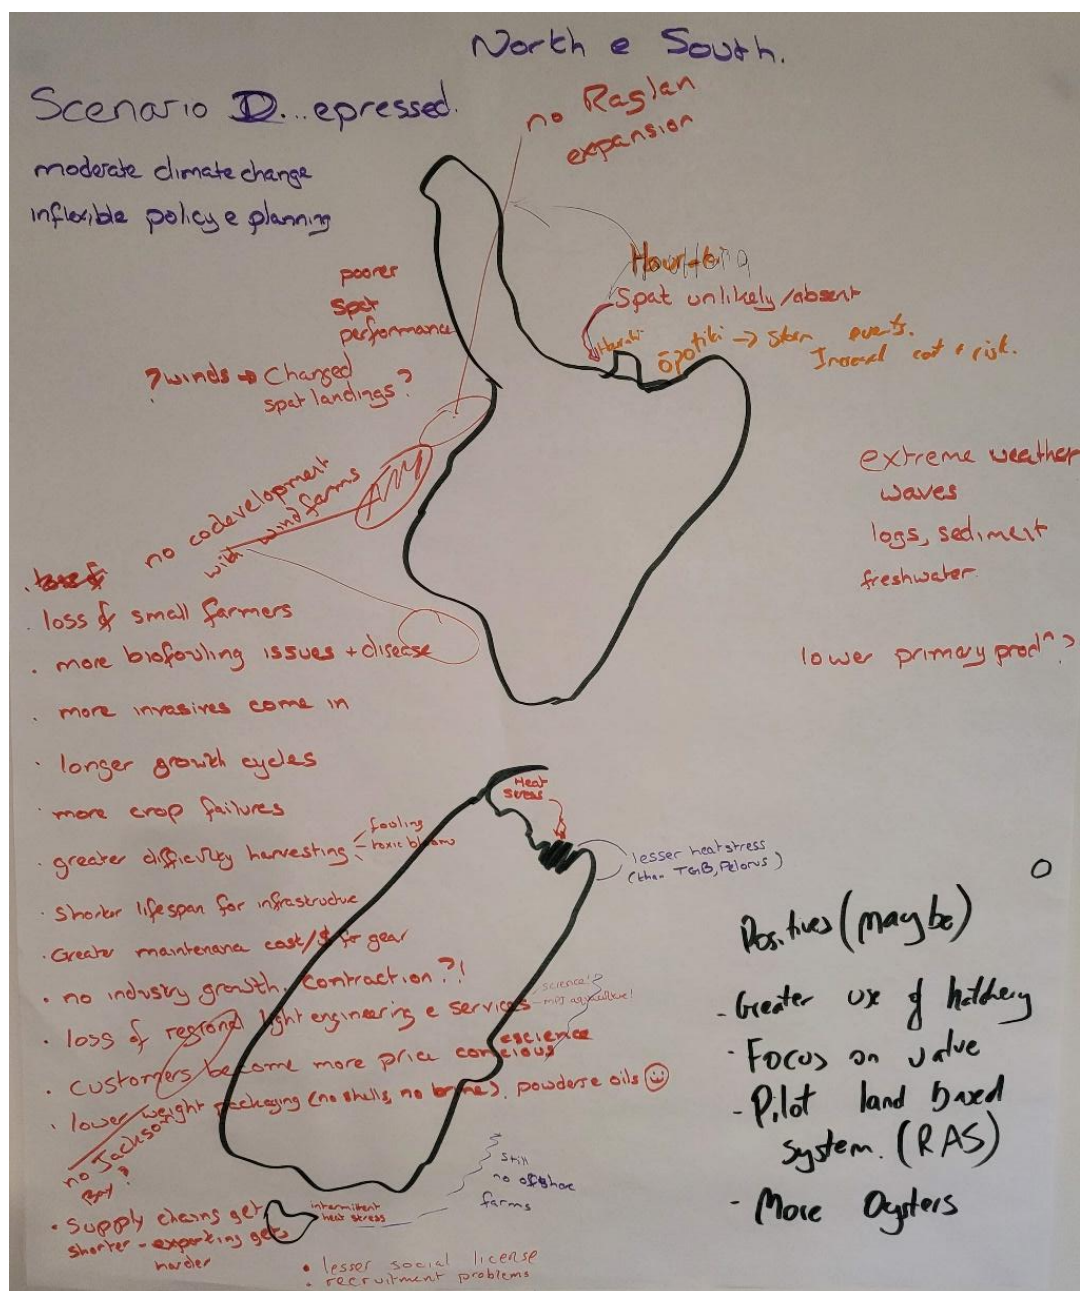 North e South.
Scenario D...epressed.
moderate climate change
inflexible policy e planning
no Raglan
expansion
poorer
spat
performance
? winds → Changed
spat landings?
Spat unlikely/absent
Ōpōtiki → Storm events.
Increased cost + risk.
no codevelopment
with windfarms
extreme weather
waves
logs, sediment
freshwater
lower primary prodⁿ?
. loss of small farmers
. more biofouling issues + disease
. more invasives come in
. longer growth cycles
. more crop failures
. greater difficulty harvesting
fouling
toxic blooms
. Shorter lifespan for infrastructure
. Greater maintenance cost/$ for gear
. no industry growth, contraction?!
. loss of regional light engineering e services
science!
. customers become more price conscious
escience
. lower weight packaging (no shells, no brine), powders e oils
no Jackson
Bay?
. Supply chains get
shorter - exporting gets
harder
Heat
stress
lesser heat stress
(than TGB, Pelorus)
still
no offshore
farms
intermittent
heat stress
• lesser social license
• recruitment problems
Positives (maybe)
- Greater use of hatchery
- Focus on value
- Pilot land based
system. (RAS)
- More Oysters